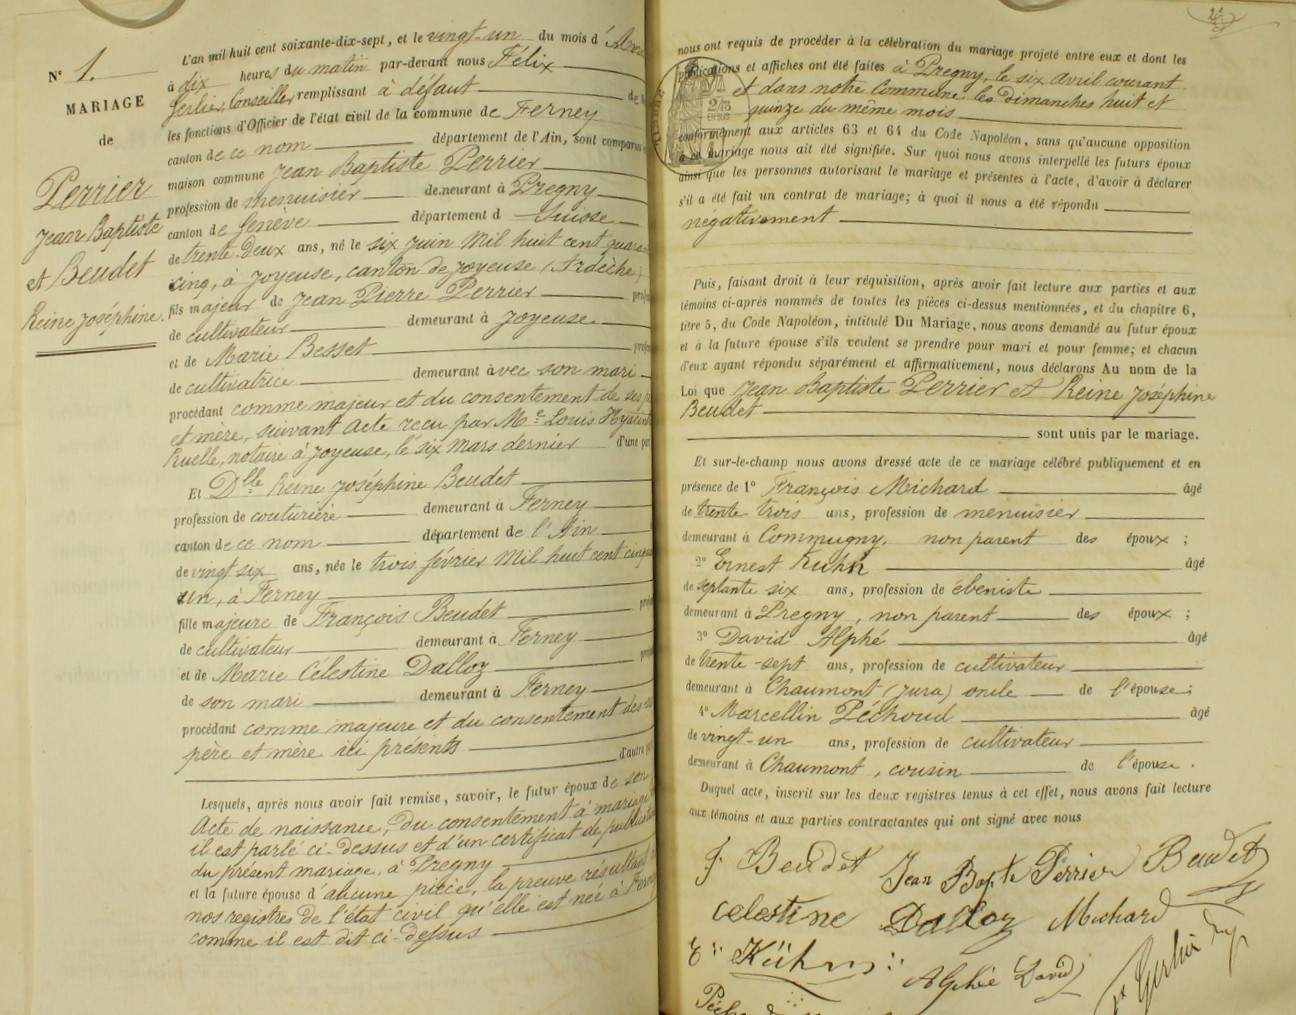 N° 1.
MARIAGE
de
Perrier
Jean Baptiste
et Beudet
Reine Joséphine.
L'an mil huit cent soixante-dix-sept, et le vingt-un du mois d'
à dix heures du matin par-devant nous Félix
Gerlier, Conseiller remplissant à défaut de
les fonctions d'Officier de l'état civil de la commune de Ferney
canton de ce nom département de l'Ain, sont comparus
maison commune Jean Baptiste Perrier
profession de menuisier demeurant à Pregny
canton de Genève département d Suisse
de trente-deux ans, né le six juin mil huit cent
cinq, à Joyeuse, canton de Joyeuse (Ardèche)
fils majeur de Jean Pierre Perrier
de cultivateur demeurant à Joyeuse
et de Marie Besset
de cultivatrice demeurant avec son mari
procédant comme majeur et du consentement de ses
et mère, suivant acte reçu par Me Louis
Ruelle, notaire à Joyeuse, le six mars dernier d'une
Et Dlle Reine Joséphine Beudet
profession de couturière demeurant à Ferney
canton de ce nom département de l'Ain
de vingt six ans, née le trois février mil huit cent
un, à Ferney
fille majeure de François Beudet
de cultivateur demeurant à Ferney
et de Marie Célestine Dalloz
de son mari demeurant à Ferney
procédant comme majeure et du consentement des
père et mère ici présents
d'autre
Lesquels, après nous avoir fait remise, savoir, le futur époux de son
Acte de naissance, du consentement à mariage
il est parlé ci-dessus et d'un certificat de
du présent mariage, à Pregny
et la future épouse d'aucune pièce, la preuve résultant
nos registres de l'état civil qu'elle est née à
comme il est dit ci-dessus
nous ont requis de procéder à la célébration du mariage projeté entre eux et dont les
publications et affiches ont été faites à Pregny, le six avril courant
et dans notre commune les dimanches huit et
quinze du même mois
conformément aux articles 63 et 64 du Code Napoléon, sans qu'aucune opposition
à ce mariage nous ait été signifiée. Sur quoi nous avons interpellé les futurs époux
ainsi que les personnes autorisant le mariage et présentes à l'acte, d'avoir à déclarer
s'il a été fait un contrat de mariage; à quoi il nous a été répondu
negativement
Puis, faisant droit à leur réquisition, après avoir fait lecture aux parties et aux
témoins ci-après nommés de toutes les pièces ci-dessus mentionnées, et du chapitre 6,
titre 5, du Code Napoléon, intitulé Du Mariage, nous avons demandé au futur époux
et à la future épouse s'ils veulent se prendre pour mari et pour femme; et chacun
d'eux ayant répondu séparément et affirmativement, nous déclarons Au nom de la
Loi que Jean Baptiste Perrier et Reine Joséphine
Beudet
sont unis par le mariage.
Et sur-le-champ nous avons dressé acte de ce mariage célébré publiquement et en
présence de 1° François Michard âgé
de trente-trois ans, profession de menuisier
demeurant à Commugny, non parent des époux ;
2° Ernest Kuhn âgé
de septante six ans, profession de ébeniste
demeurant à Pregny, non parent des époux ;
3° David Alphé âgé
de trente-sept ans, profession de cultivateur
demeurant à Chaumont (Jura) oncle de l'épouse ;
4° Marcellin Péchoud âgé
de vingt-un ans, profession de cultivateur
demeurant à Chaumont, cousin de l'épouse.
Duquel acte, inscrit sur les deux registres tenus à cet effet, nous avons fait lecture
aux témoins et aux parties contractantes qui ont signé avec nous
f. Beudet Jean Bapte Perrier Beudet
celestine Dalloz Michard
E. Kühn Alphée David
Gerlier